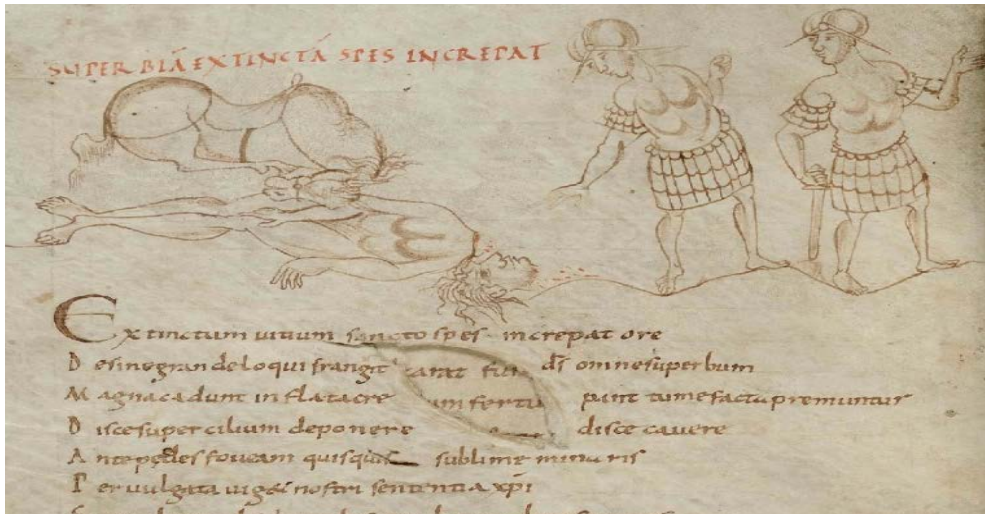 SUPERBIĀ EXTINCTĀ SPES INCREPAT
Extinctum uitium sancto spes increpat ore
Desine grande loqui frangit ds omne superbum
Magna cadunt inflata cre pant tumefacta premuntur
Disce supercilium deponere disce cauere
Ante pedes foueam quisquis sublime minaris
Peruulgata uiget nostri sententia xpi